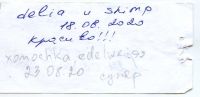 delia и shimp
18.08.2020
Красиво!!!
xomochka edelweiss
23.08.20 супер